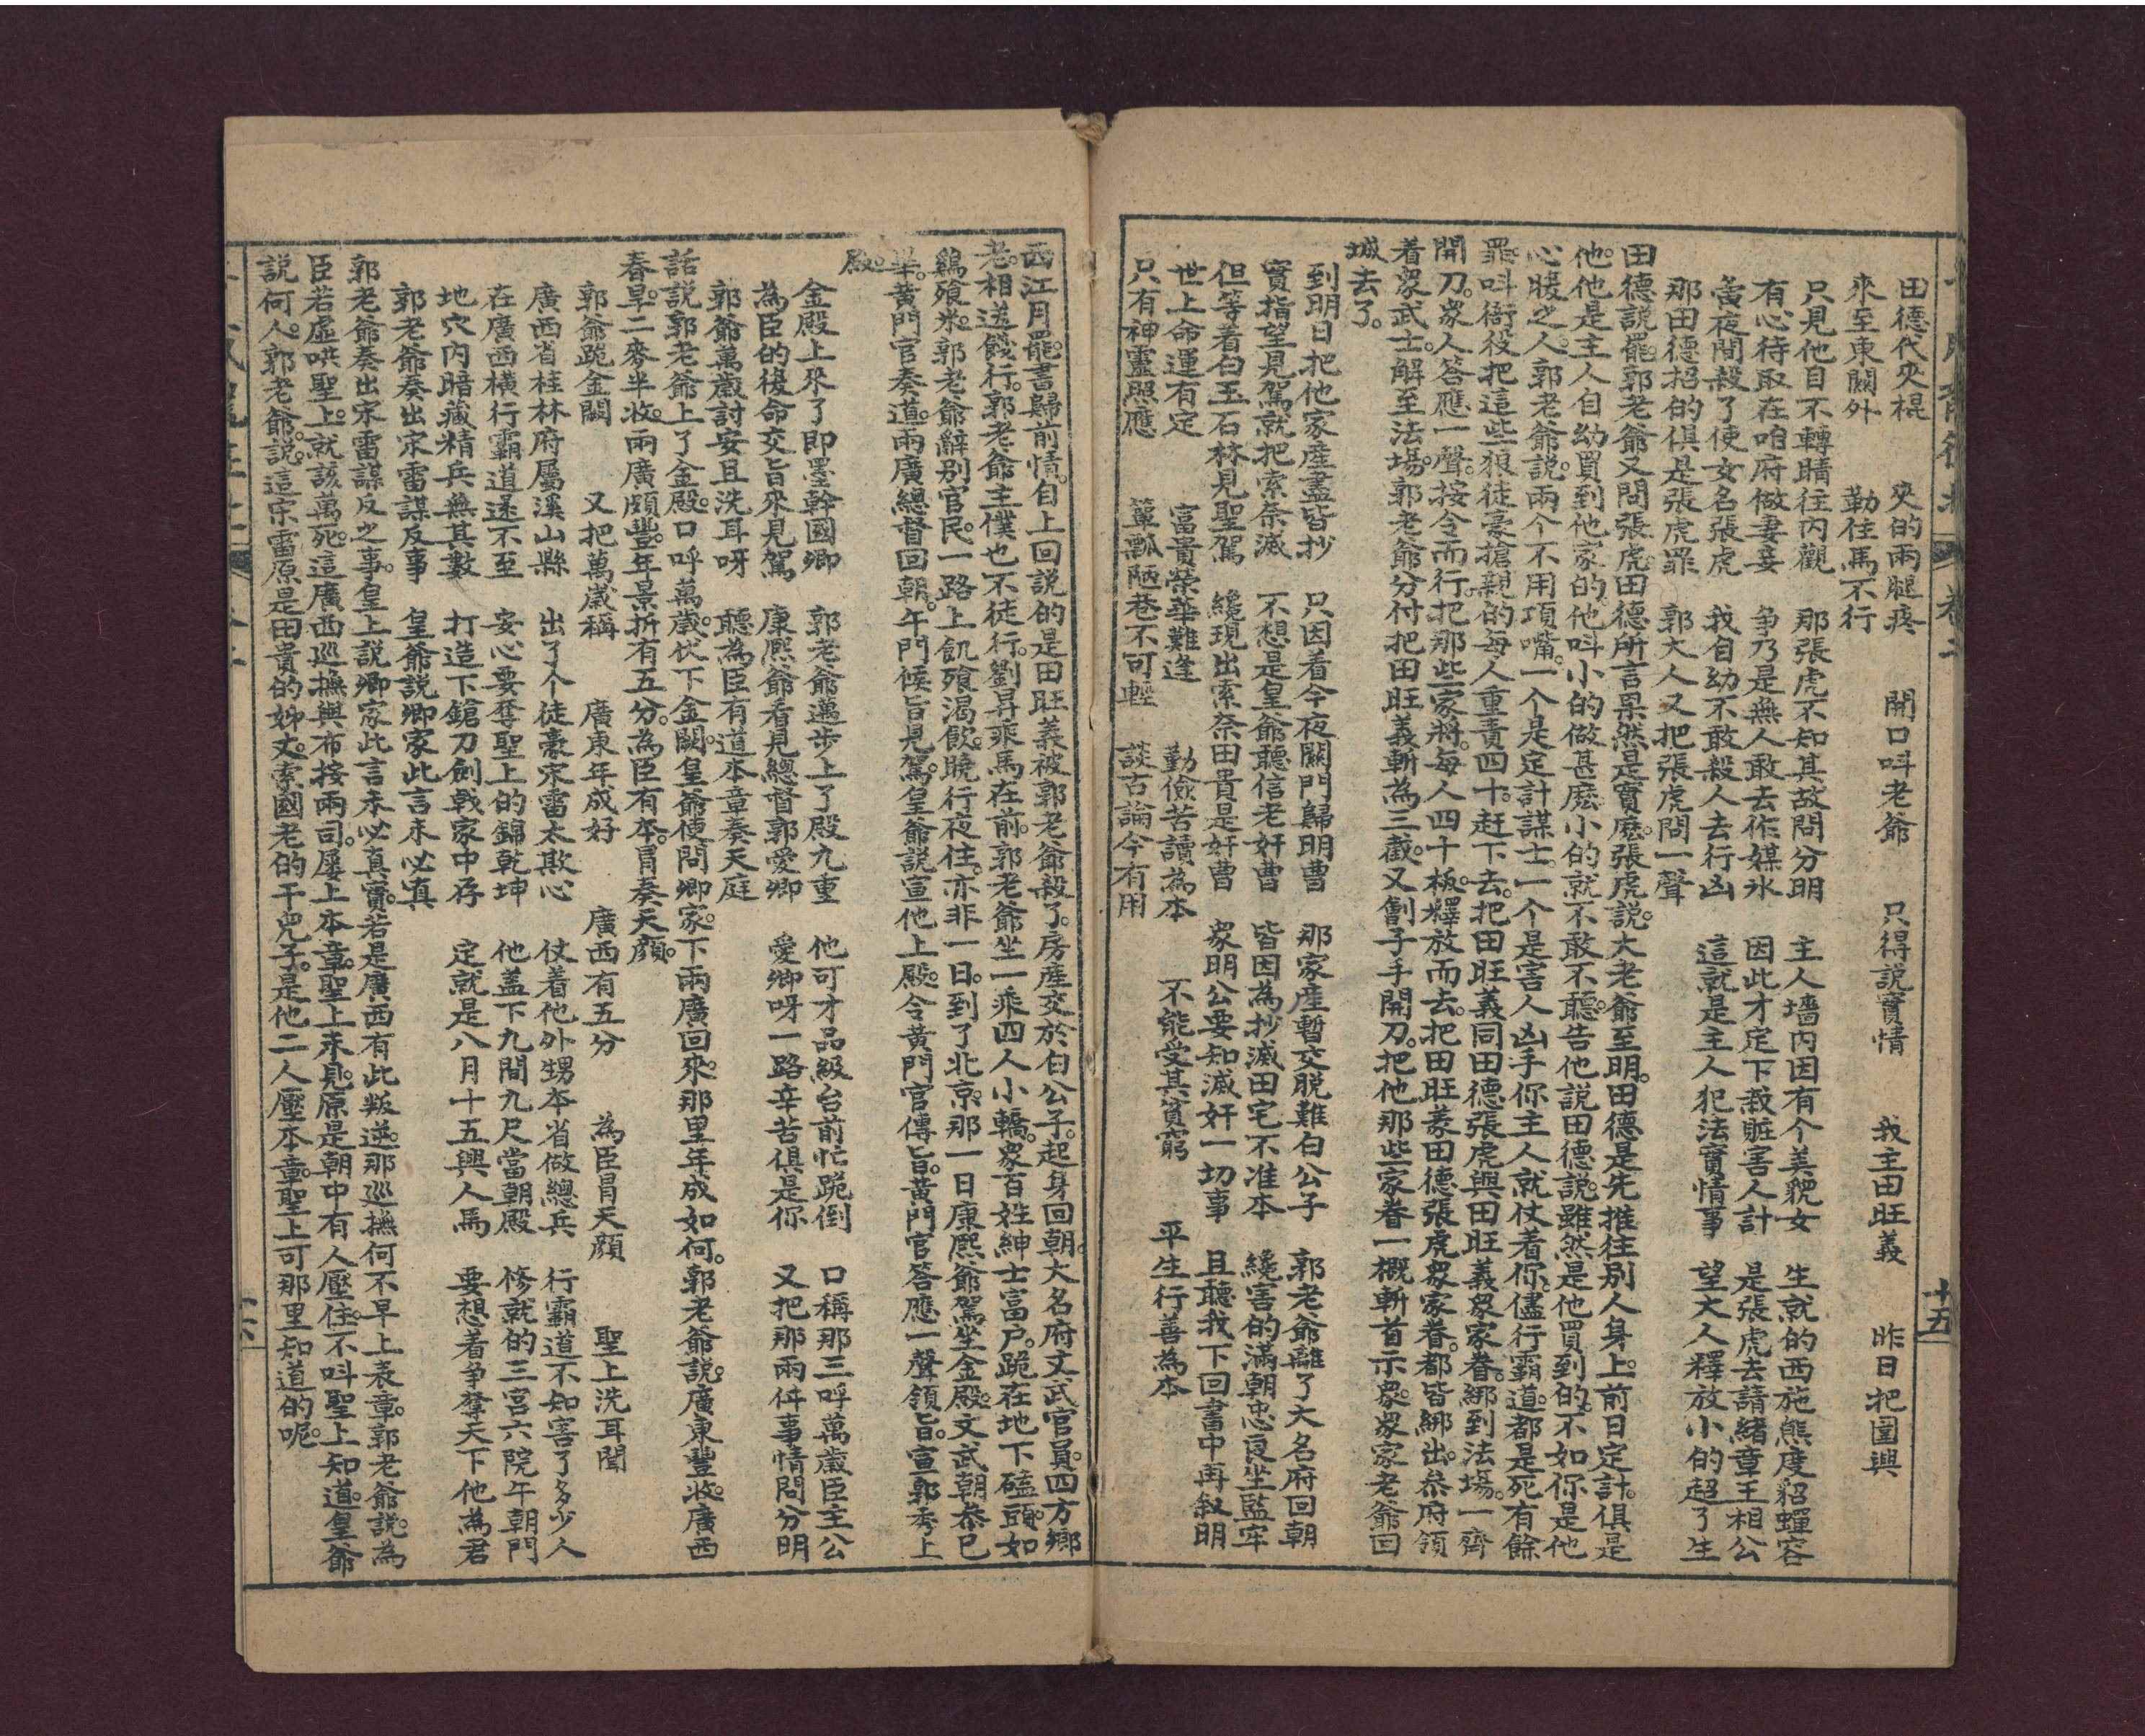 田德代夾棍　夾的兩腿疼　開口呌老爺　只得説實情　我主田旺義　昨日把圍興
來至東關外　勒住馬不行
只見他目不轉睛往内觀　那張虎不知其故問分明　主人墻内因有个美貌女　生就的西施態度貂蟬容
有心待取在咱府做妻妾　争乃是無人敢去作媒氷　因此才定下栽賍害人計　是張虎去請緒章王相公
黃夜間殺了使女名張虎　我自幼不敢殺人去行凶　這就是主人犯法實情事　望大人釋放小的超了生
那田德招的俱是張虎罪　郭大人又把張虎問一聲
田德説罷。郭老爺又問張虎。田德所言果然是實麽。張虎説。大老爺至明。田德是先推往别人身上。前日定計。俱是
他。他是主人自幼買到他家的。他呌小的做甚麽。小的就不敢不聽。告他説田德説。雖然是他買到的。不如你是他
心暖之人。郭老爺説。兩个不用項嘴。一个是定計謀士。一个是害人凶手。你主人就仗着你。儘行霸道。都是死有餘
罪。呌衙役把這些狼徒豪搶親的。每人重責四十。赶下去。把田旺義同田德張虎。與田旺義衆家眷。綁到法場。一齊
開刀。衆人答應一聲。按令而行。把那些家將。每人四十板。釋放而去。把田旺義田德張虎衆家眷。都皆綁出。叅府領
着衆武士。解至法場。郭老爺分付把田旺義斬為三截。又劊子手開刀。把他那些家眷一概斬首示衆。衆家老爺回
城去了。
到明日把他家産盡皆抄　只因看今夜關門歸明曹　那家産暫交脱難白公子　郭老爺離了大名府回朝
實指望見駕就把索奈滅　不想是皇爺聽信老奸曹　皆因為抄滅田宅不准本　纔害的滿朝忠良坐監牢
但等着白玉石林見聖駕　纔現出索奈田貴是奸曹　衆明公要知滅奸一切事　且聽我下回書中再叙明
世上命運有定　富貴榮華難逢　勤儉苦讀為本　不能受其貧窮　平生行善為本
只有神靈照應　簞瓢陋巷不可輕　談古論今有用
西江月罷。書歸前情。自上回説的是田旺義被郭老爺殺了。房産交於白公子。起身回朝。大名府文武官員。四方鄉
老。相送餞行。郭老爺主僕也不徒行。劉昇乘馬在前。郭老爺坐一乘四人小轎。衆百姓紳士富戸。跪在地下磕頭。如
鷄飱米。郭老爺辭别官民。一路上飢飱渴飲。曉行夜住。亦非一日。到了北京。那一日康熙爺駕坐金殿。文武朝叅已
畢。黃門官奏道。兩廣總督回朝。午門候旨見駕。皇爺説宣他上殿。令黃門官傳旨。黃門官答應一聲領旨。宣郭秀上
殿。
金殿上來了即墨幹國卿　郭老爺邁步上了殿九重　他可才品級台前忙跪倒　口稱那三呼萬歲臣主公
為臣的後命交旨來見駕　康熙爺看見總督郭愛卿　愛卿呀一路辛苦俱是你　又把那兩件事情問分明
郭爺萬歲討安且洗耳呀　聽為臣有道本章奏天庭
話説郭老爺上了金殿。口呼萬歲。伏下金闕。皇爺便問卿家。下兩廣回來。那里年成如何。郭老爺説。廣東豐收。廣西
春旱。二麥半收。兩廣頗豐。年景折有五分。為臣有本。冒奏天顔。
郭爺跪金闕　又把萬歲稱　廣東年成好　廣西有五分　為臣冒天顔　聖上洗耳聞
廣西省桂林府屬溪山縣　出了个徒豪宋雷太欺心　仗着他外甥本省做總兵　行霸道不知害了多少人
在廣西横行霸道還不至　安心要奪聖上的錦乾坤　他盖下九間九尺當朝殿　修就的三宫六院午朝門
地穴内暗藏精兵無其數　打造下鎗刀劍戟家中存　定就是八月十五興人馬　要想着争奪天下他為君
郭老爺奏出宋雷謀反事　皇爺説卿家此言未必真
郭老爺奏出宋雷謀反之事。皇上説。卿家此言未必真實。若是廣西有此叛逆。那巡撫何不早上表章。郭老爺説。為
臣若虛哄聖上。就該萬死。這廣西巡撫與布按兩司。屢上本章。聖上未見。原是朝中有人壓住。不呌聖上知道。皇爺
説何人。郭老爺説。這宋雷原是田貴的姊丈。索國老的干兒子。是他二人壓本章。聖上可那里知道的呢。